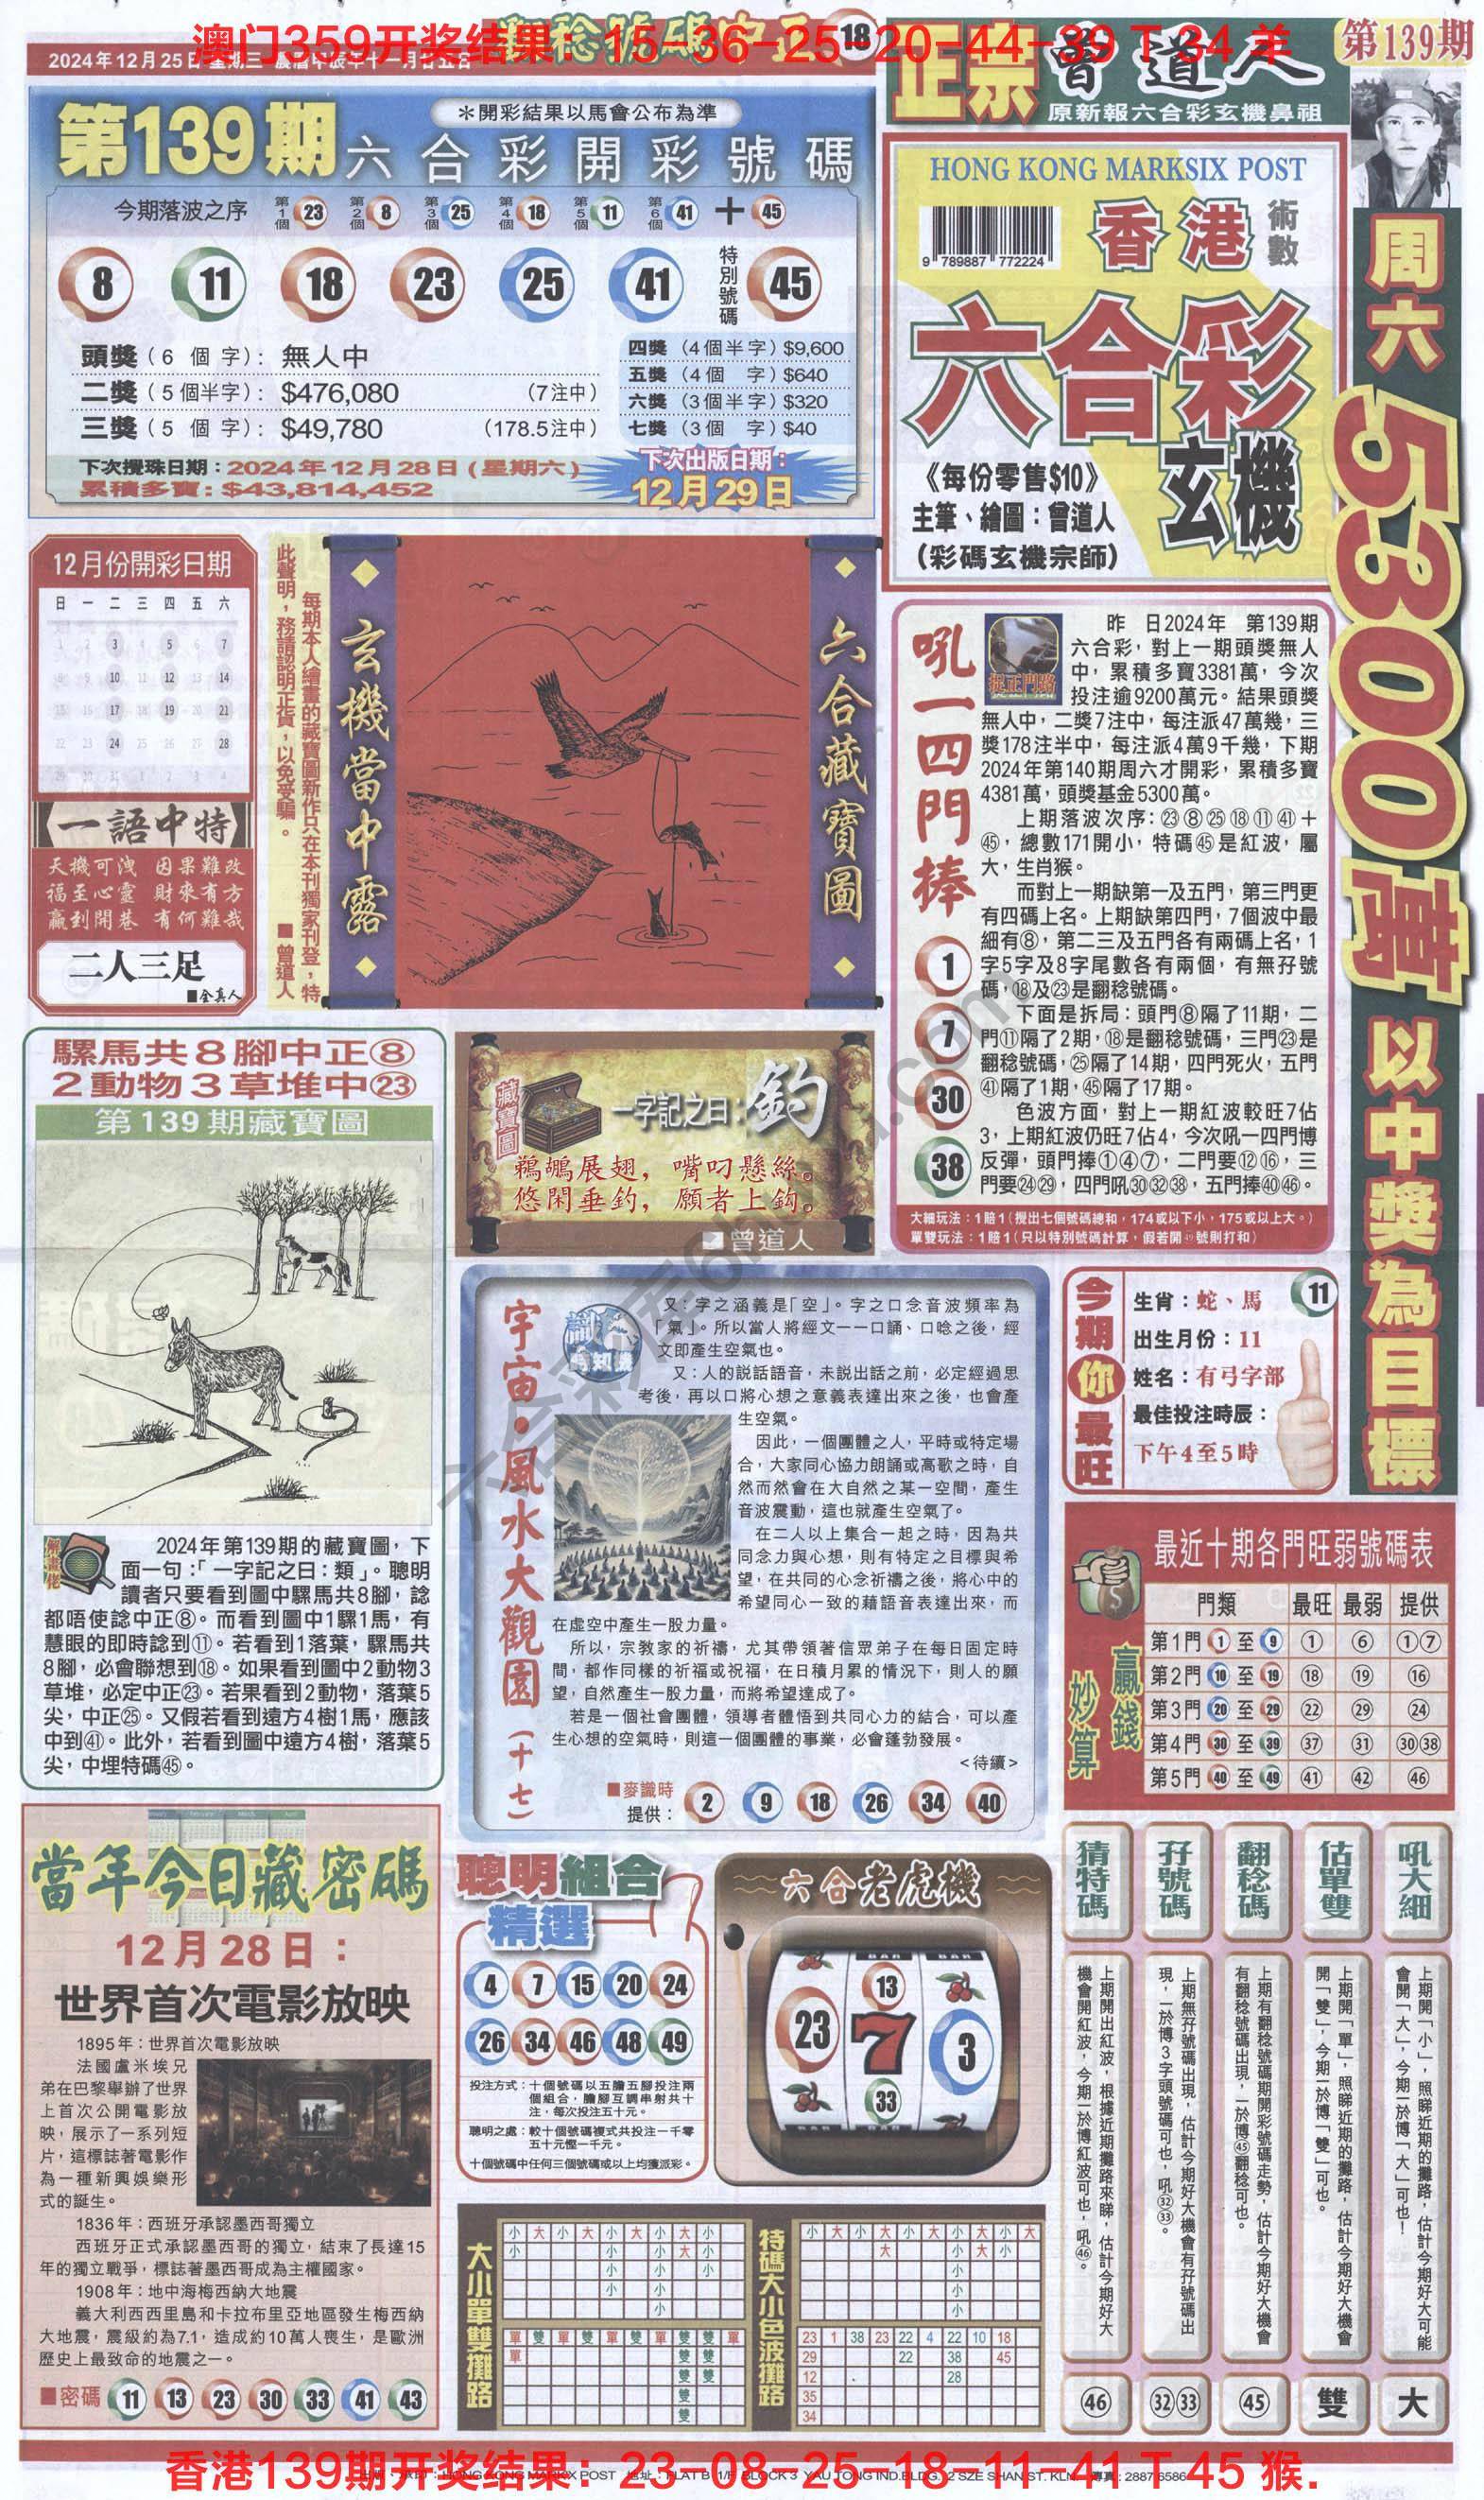 澳门359开奖结果：15-36-25-20-44-39 T 34 羊
翻稔號碼中五 18
2024年12月25日 星期三
正宗 曾道人
原新報六合彩玄機鼻祖
第139期
第139期 六合彩開彩號碼
＊開彩結果以馬會公布為準
今期落波之序 第1個 23 第2個 8 第3個 25 第4個 18 第5個 11 第6個 41 + 45
8 11 18 23 25 41 特別號碼 45
頭獎（6 個 字）：無人中
二獎（5個半字）：$476,080 （7注中）
三獎（5 個 字）：$49,780 （178.5注中）
四獎（4個半字）$9,600
五獎（4個 字）$640
六獎（3個半字）$320
七獎（3個 字）$40
下次攪珠日期：2024年12月28日（星期六）
累積多寶：$43,814,452
下次出版日期：
12月29日
HONG KONG MARKSIX POST
9 789887 772224
香港
術數
六合彩
玄機
《每份零售$10》
主筆、繪圖：曾道人
（彩碼玄機宗師）
周六5300萬以中獎為目標
12月份開彩日期
日 一 二 三 四 五 六
1 2 3 4 5 6 7
8 9 10 11 12 13 14
15 16 17 18 19 20 21
22 23 24 25 26 27 28
29 30 31 1 2 3 4
一語中特
天機可洩 因果難改
福至心靈 財來有方
贏到開巷 有何難哉
二人三足
■全真人
每期本人繪畫的藏寶圖新作只在本刊獨家刊登，特
此聲明，務請認明正貨，以免受騙。 ■曾道人
玄機當中露
六合藏寶圖
吼一四門捧
捉正門路
1
7
30
38
昨 日2024年 第139期
六合彩，對上一期頭獎無人
中，累積多寶3381萬，今次
投注逾9200萬元。結果頭獎
無人中，二獎7注中，每注派47萬幾，三
獎178注半中，每注派4萬9千幾，下期
2024年第140期周六才開彩，累積多寶
4381萬，頭獎基金5300萬。
上期落波次序：㉓⑧㉕⑱⑪㊶＋
㊺，總數171開小，特碼㊺是紅波，屬
大，生肖猴。
而對上一期缺第一及五門，第三門更
有四碼上名。上期缺第四門，7個波中最
細有⑧，第二三及五門各有兩碼上名，1
字5字及8字尾數各有兩個，有無孖號
碼，⑱及㉓是翻稔號碼。
下面是拆局：頭門⑧隔了11期，二
門⑪隔了2期，⑱是翻稔號碼，三門㉓是
翻稔號碼，㉕隔了14期，四門死火，五門
㊶隔了1期，㊺隔了17期。
色波方面，對上一期紅波較旺7佔
3，上期紅波仍旺7佔4，今次吼一四門博
反彈，頭門捧①④⑦，二門要⑫⑯，三
門要㉔㉙，四門吼㉚㉜㊳，五門捧㊵㊻。
大細玩法：1賠1（攪出七個號碼總和，174或以下小，175或以上大。）
單雙玩法：1賠1（只以特別號碼計算，假若開㊾號則打和）
騾馬共8腳中正⑧
2動物3草堆中㉓
第139期藏寶圖
解畫佬
2024年第139期的藏寶圖，下
面一句：「一字記之曰：類」。聰明
讀者只要看到圖中騾馬共8腳，諗
都唔使諗中正⑧。而看到圖中1騾1馬，有
慧眼的即時諗到⑪。若看到1落葉，騾馬共
8腳，必會聯想到⑱。如果看到圖中2動物3
草堆，必定中正㉓。若果看到2動物，落葉5
尖，中正㉕。又假若看到遠方4樹1馬，應該
中到㊶。此外，若看到圖中遠方4樹，落葉5
尖，中埋特碼㊺。
藏寶圖
一字記之曰：釣
鵜鶘展翅，嘴叼懸絲。
悠閑垂釣，願者上鈎。
■曾道人
宇宙·風水大觀園（十七）
又：字之涵義是「空」。字之口念音波頻率為
「氣」。所以當人將經文一一口誦、口唸之後，經
文即產生空氣也。
又：人的説話語音，未説出話之前，必定經過思
考後，再以口將心想之意義表達出來之後，也會產
生空氣。
因此，一個團體之人，平時或特定場
合，大家同心協力朗誦或高歌之時，自
然而然會在大自然之某一空間，產生
音波震動，這也就產生空氣了。
在二人以上集合一起之時，因為共
同念力與心想，則有特定之目標與希
望，在共同的心念祈禱之後，將心中的
希望同心一致的藉語音表達出來，而
在虛空中產生一股力量。
所以，宗教家的祈禱，尤其帶領著信眾弟子在每日固定時
間，都作同樣的祈福或祝福，在日積月累的情況下，則人的願
望，自然產生一股力量，而將希望達成了。
若是一個社會團體，領導者體悟到共同心力的結合，可以產
生心想的空氣時，則這一個團體的事業，必會蓬勃發展。
<待續>
■麥識時
提供： 2 9 18 26 34 40
今期你最旺
生肖：蛇、馬 11
出生月份：11
姓名：有弓字部
最佳投注時辰：
下午4至5時
贏錢妙算
最近十期各門旺弱號碼表
門類 最旺 最弱 提供
第1門 1 至 9 ① ⑥ ①⑦
第2門 10 至 19 ⑱ ⑲ ⑯
第3門 20 至 29 ㉒ ㉙ ㉔
第4門 30 至 39 ㊲ ㉛ ㉚㊳
第5門 40 至 49 ㊶ ㊷ ㊻
當年今日藏密碼
12月28日：
世界首次電影放映
1895年：世界首次電影放映
法國盧米埃兄
弟在巴黎舉辦了世界
上首次公開電影放
映，展示了一系列短
片，這標誌著電影作
為一種新興娛樂形
式的誕生。
1836年：西班牙承認墨西哥獨立
西班牙正式承認墨西哥的獨立，結束了長達15
年的獨立戰爭，標誌著墨西哥成為主權國家。
1908年：地中海梅西納大地震
義大利西西里島和卡拉布里亞地區發生梅西納
大地震，震級約為7.1，造成約10萬人喪生，是歐洲
歷史上最致命的地震之一。
■密碼 11 13 23 30 33 41 43
聰明組合
精選
4 7 15 20 24
26 34 46 48 49
投注方式：十個號碼以五膽五腳投注兩
個組合，膽腳互調串射共十
注，每次投注五十元。
聰明之處：較十個號碼複式共投注一千零
五十元慳一千元。
十個號碼中任何三個號碼或以上均獲派彩。
六合老虎機
BAR BAR BAR
23 13 7 33 3
大小單雙攤路
小 大 小 大 小 大 小 大 小
小 小 小 大 小
小 小 小
小 小
小
單 雙 單 雙 單 雙 單 雙 雙 單
單 雙 雙
雙 雙
雙
雙
特碼大小色波攤路
小 大 小 大 小 大 小 大 小 大
大 小 大 小
小
小
小
23 1 38 23 22 4 22 10 18
29 22 38 45
12 28
35
34
猜特碼
上期開出紅波，根據近期攤路來睇，估計今期好大
機會開紅波，今期一於博紅波可也，吼㊻。
㊻
孖號碼
上期無孖號碼出現，估計今期好大機會有孖號碼出
現，一於博3字頭號碼可也，吼㉜㉝。
㉜㉝
翻稔碼
上期有翻稔號碼期開彩號碼走勢，估計今期好大機會
有翻稔號碼出現，一於博㊺翻稔可也。
㊺
估單雙
上期開「單」，照睇近期的攤路，估計今期好大機會
開「雙」，今期一於博「雙」可也。
雙
吼大細
上期開「小」，照睇近期的攤路，估計今期好大可能
會開「大」，今期一於博「大」可也！
大
香港139期开奖结果：23-08-25-18-11-41 T 45 猴.